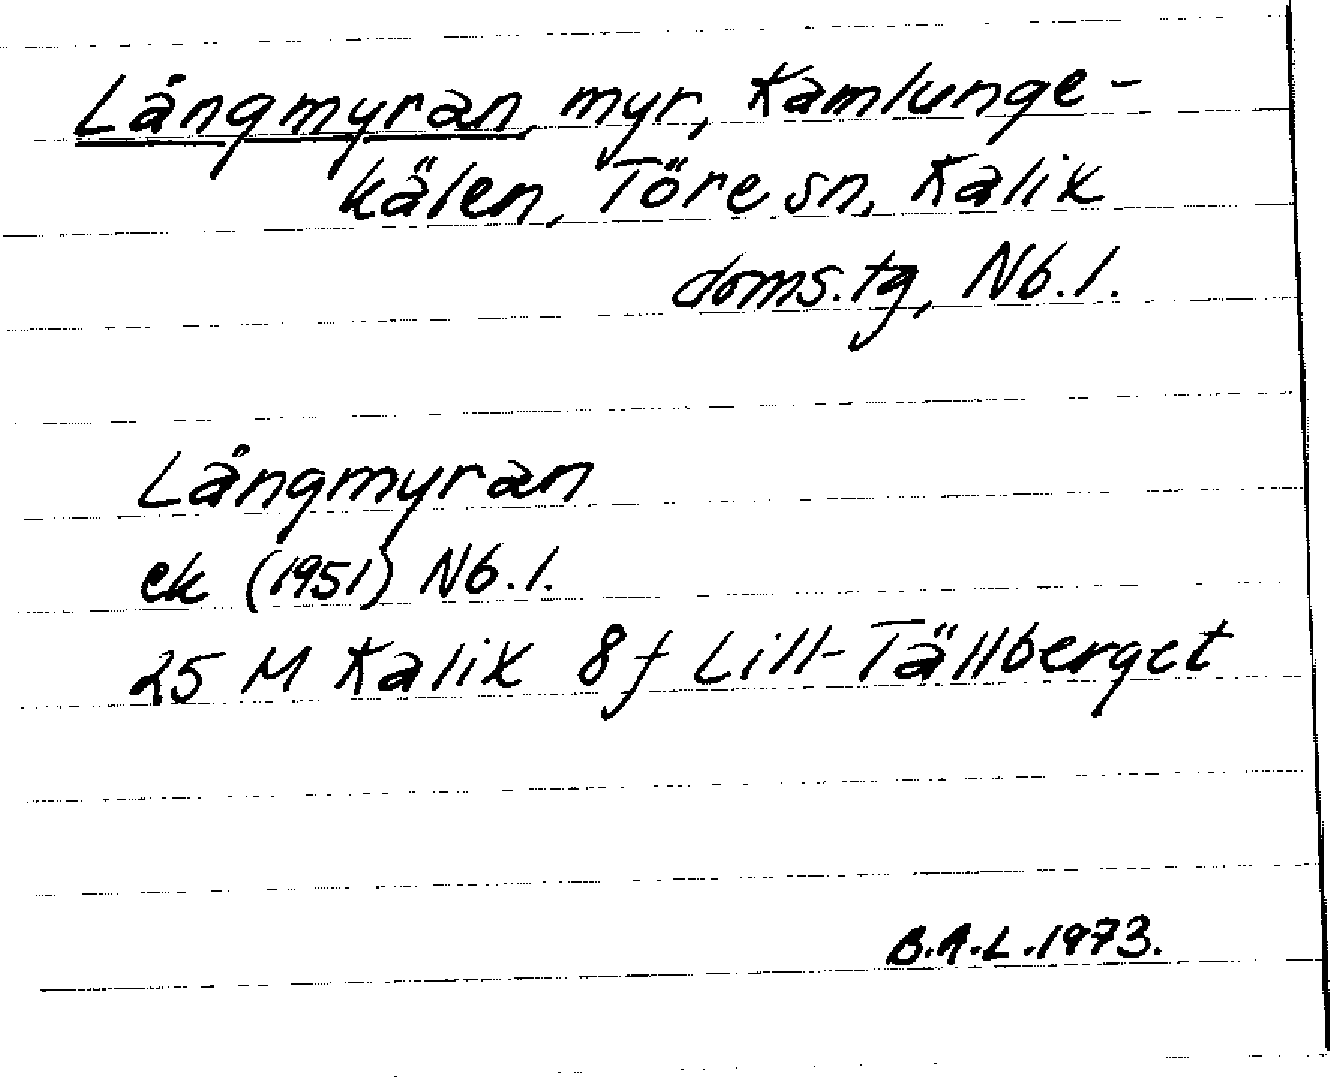 Långmyran, myr, Kamlunge-
kälen, Töre sn, Kalix
doms.tg, Nb.l.
Långmyran
ek (1951) Nb.l.
25 M Kalix 8f Lill-Tällberget
B.A.L. 1973.